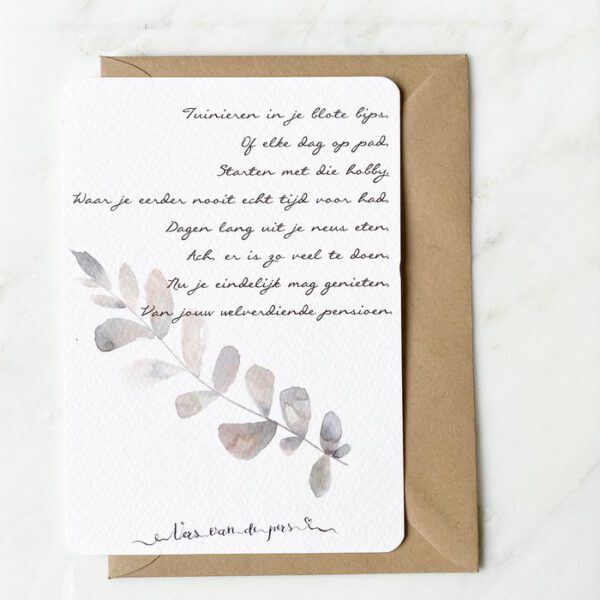 Tuinieren in je blote bips.
Of elke dag op pad.
Starten met die hobby.
Waar je eerder nooit echt tijd voor had.
Dagen lang uit je neus eten.
Ach, er is zo veel te doen.
Nu je eindelijk mag genieten.
Van jouw welverdiende pensioen.
Vers van de pers